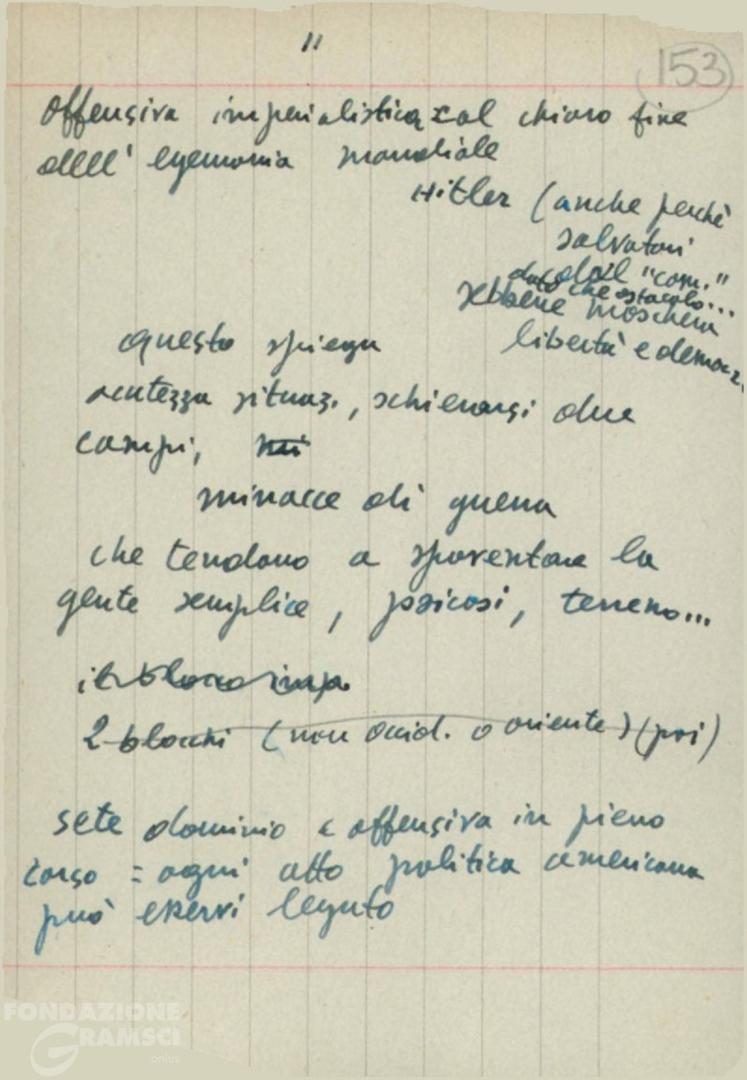 11
153
offensiva imperialistica col chiaro fine
dell' egemonia mondiale
Hitler (anche perchè
salvatori
dal "com."
dato che ostacolo...
sebbene maschera
libertà e democr.
questo spiega
acutezza situaz., schierarsi due
campi,
minacce di guerra
che tendono a spaventare la
gente semplice, psicosi, terreno...
il blocco imp.
2 blocchi (non occid. o oriente) (poi)
sete dominio e offensiva in pieno
corso = ogni atto politica americana
può esservi legato
FONDAZIONE
GRAMSCI
onlus